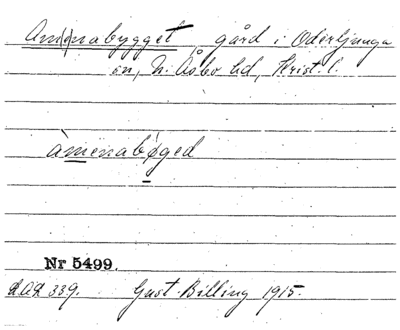 Am(o)nabygget, gård i Oderljunga
sn, N. Åsbo hd, Krist. l.
àmenabǿged
Nr 5499.
LAL 339. Gust. Billing 1915.